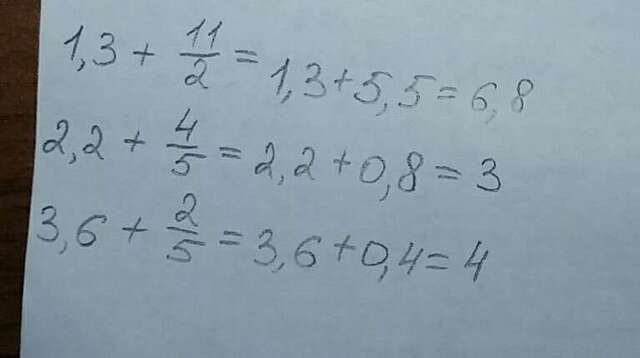 1,3 + 11/2 = 1,3+5,5=6,8
2,2 + 4/5 = 2,2+0,8=3
3,6 + 2/5 = 3,6+0,4=4